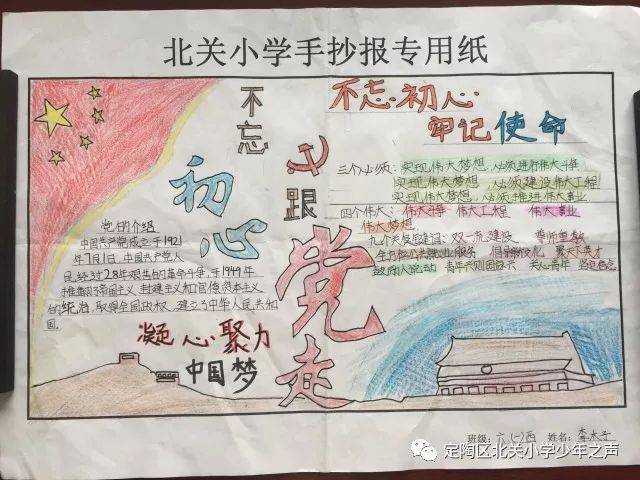 北关小学手抄报专用纸
不忘
初心
跟
党走
不忘初心
牢记使命
三个必须：实现伟大梦想，必须进行伟大斗争
实现伟大梦想，必须建设伟大工程
实现伟大梦想，必须推进伟大事业
四个伟大：伟大斗争 伟大工程 伟大事业
伟大梦想
双一流建设 尊师重教
党的介绍
中国共产党成立于1921
年7月1日，中国共产党人
民经过28年艰苦的革命斗争，于1949年
推翻了帝国主义，封建主义和官僚资本主义
的统治，取得全国政权，建立了中华人民共和
国。
凝心聚力
中国梦
班级：六（一）西 姓名：
定陶区北关小学少年之声